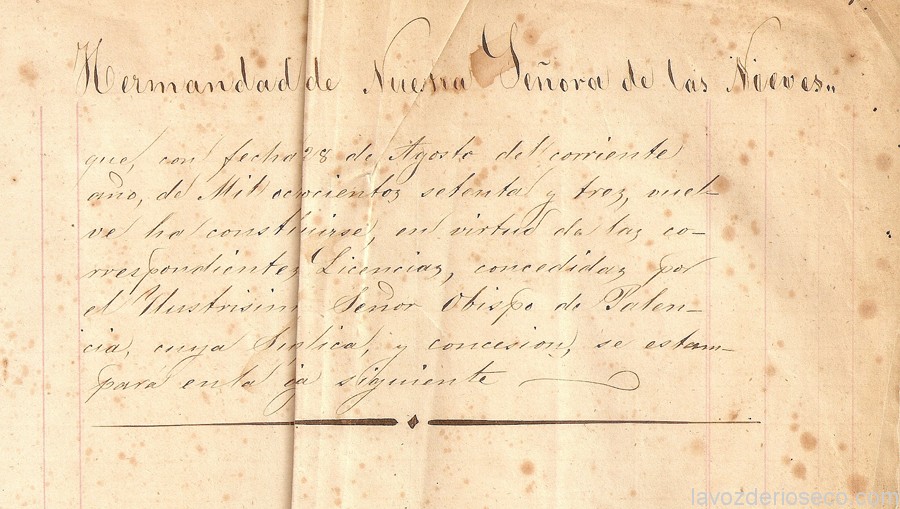 Hermandad de Nuestra Señora de las Nieves..
que, con fecha 28 de Agosto del corriente
año, de Mil ococientos setenta y tres, vuel-
ve ha constituirse, en virtud de las co-
rrespondientes Licencias, concedidas por
el Ilustrisim Señor Obispo de Palen-
cia, cuya suplica, y concesion, se estam-
pará en la oja siguiente
lavozderioseco.com